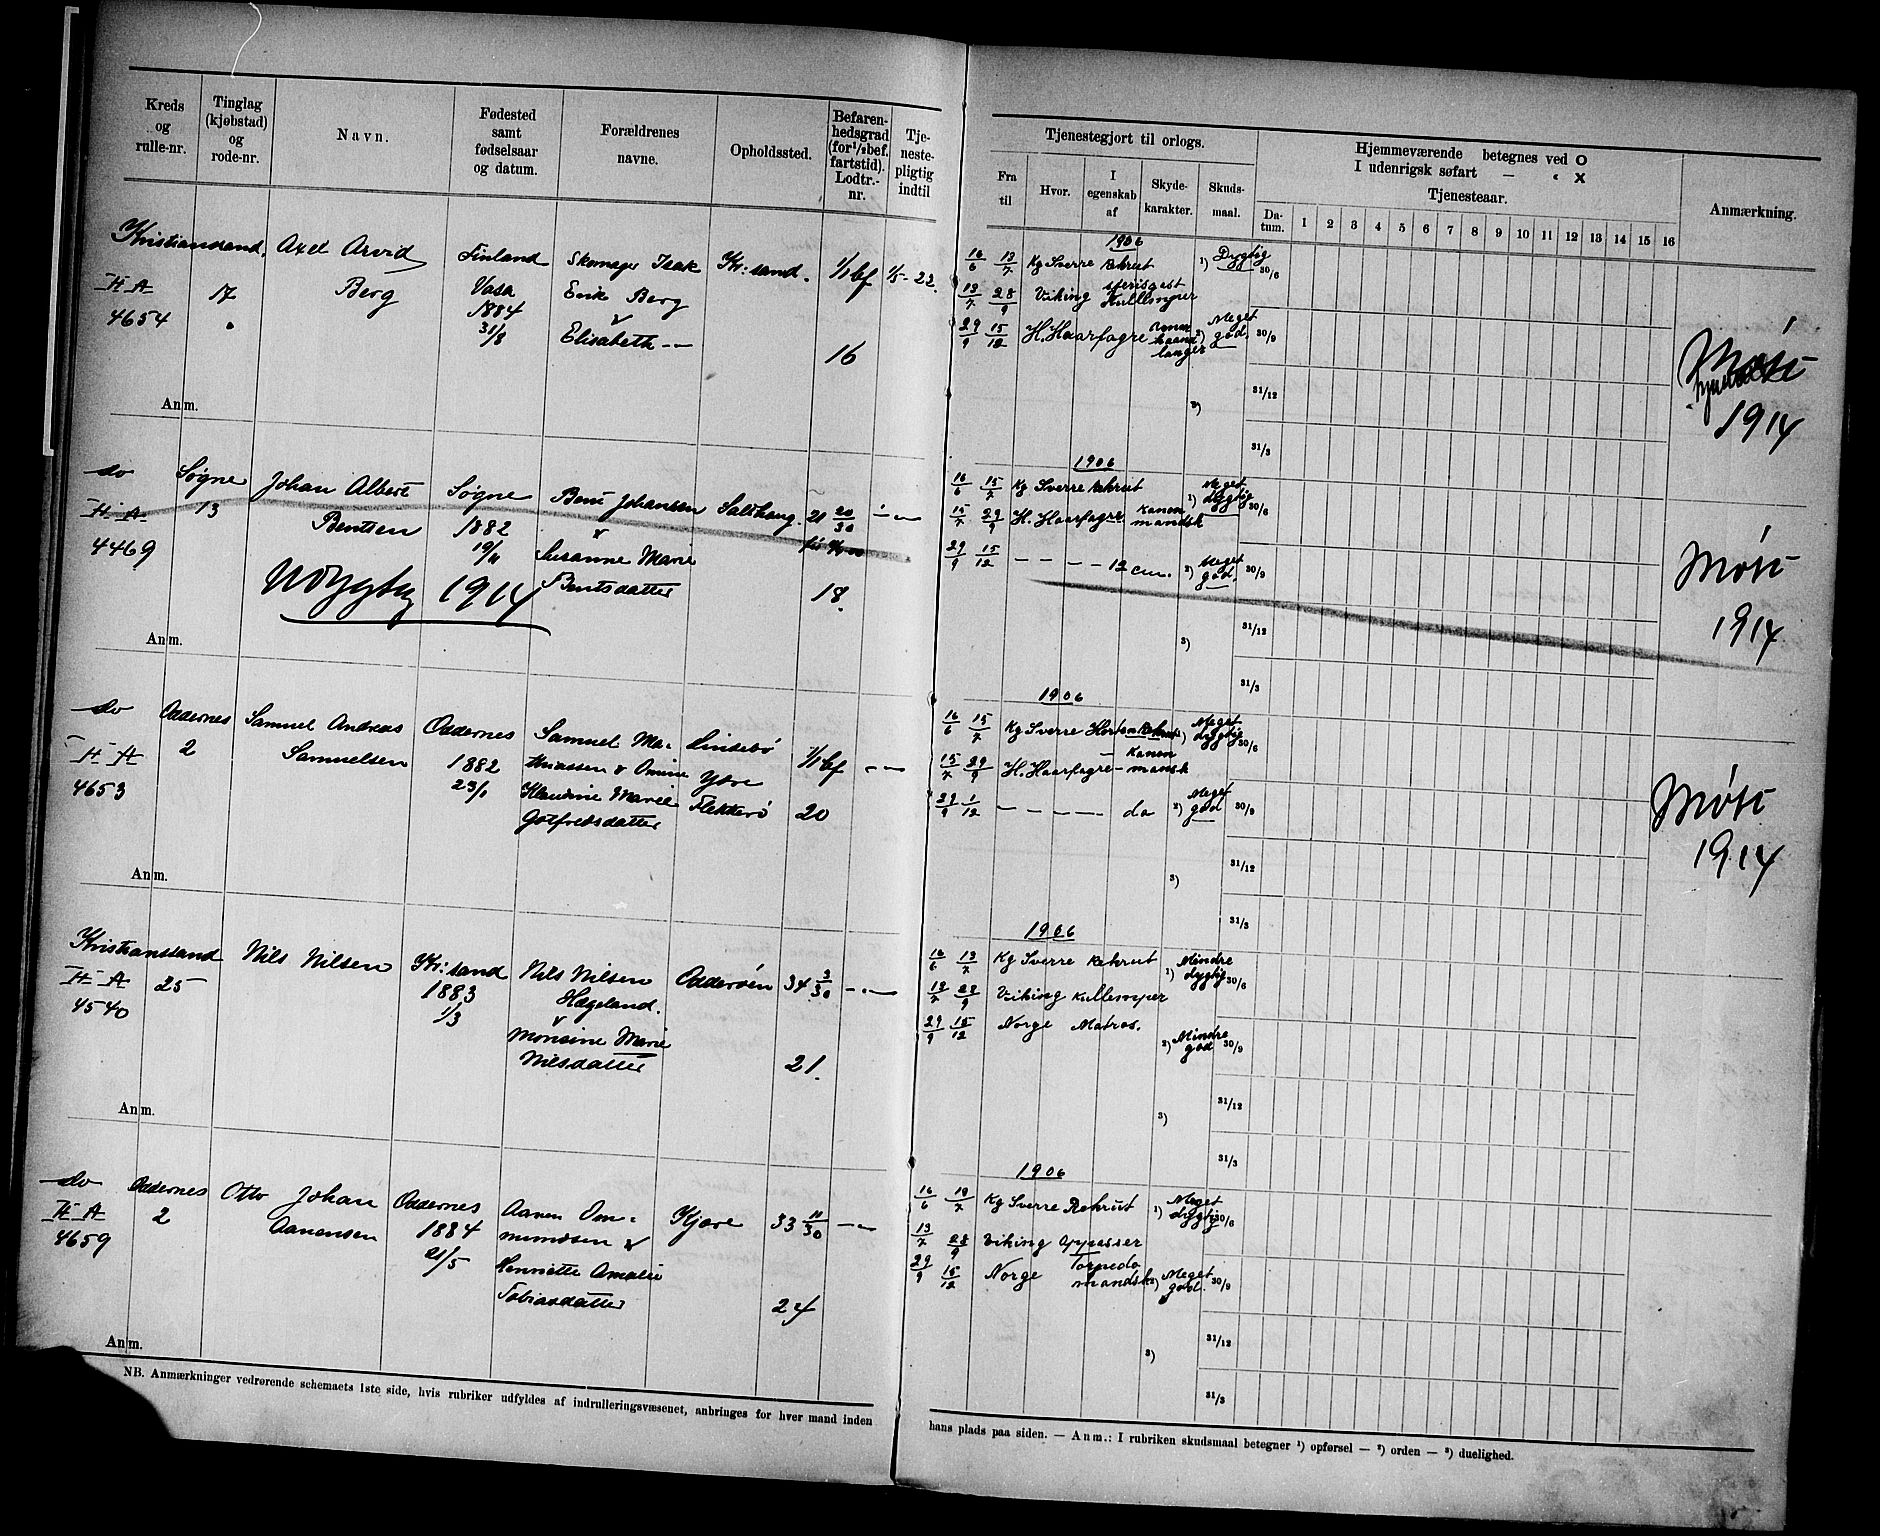 Kreds og rulle-nr.
Tinglag (kjøbstad) og rode-nr.
Navn.
Fødested samt fødselsaar og datum.
Forældrenes navne.
Opholdssted.
Befaren-hedsgrad (for 1/2 bef. fartstid). Lodtr.-nr.
Tje-neste-pligtig indtil
Tjenestegjort til orlogs.
Fra til
Hvor.
I egenskab af
Skyde-karakter.
Skuds-maal.
Hjemmeværende betegnes ved O
I udenrigsk søfart — " X
Tjenesteaar.
Da-tum.
1 2 3 4 5 6 7 8 9 10 11 12 13 14 15 16
Anmærkning.
Kristiansand. Axel Arvid Finland Skomager Isak Kr:sand. 1/1 bf 1/5-22.
II A 17 Berg Vasa Erik Berg
4654 1884 &
31/8 Elisabeth —
16
Anm.
1906
16/6 13/7 Kg Sverre Rekrut 1) Dygtig 30/6
13/7 28/9 Viking Kullemper
29/9 15/12 H. Haarfagre 2) Meget god. 30/9
3) 31/12
31/3
Møtt
1914
do Søgne Johan Albert Søgne Bent Johansen Salthang. 21 20/30 — —
II A 13 Bentsen 1882 &
4469 19/11 Susanne Marie
Bentsdatter 18.
Udygtig 1914
Anm.
1906
16/6 15/7 Kg Sverre Rekrut 1) Meget dygtig 30/6
15/7 29/9 H. Haarfagre Kanonmandsk
29/9 15/12 — — — — 12 cm. 2) Meget god. 30/9
3) 31/12
31/3
Møtt
1914
do Oddernes Samuel Andreas Oddernes Samuel Ma- Lindebø 1/1 bf — —
II A 2 Samuelsen 1882 thiassen & Omine Ydre
4653 23/1 Klaudine Marie Flekkerø
Gotfredsdatter 20
Anm.
1906
16/6 15/7 Kg Sverre Horten Rekrut 1) Meget dygtig 30/6
15/7 29/9 H. Haarfagre — Kanonmansk
29/9 1/12 — — — — do 2) Meget god 30/9
3) 31/12
31/3
Møtt
1914
Kristianssand Nils Nilsen Kr:sand Nils Nilsen Odderøen 34 3/30 — —
II A 25 1883 Hægeland.
4540 1/3 &
Monsine Marie
Nilsdatter 21.
Anm.
1906
16/6 13/7 Kg Sverre Rekrut 1) Mindre dygtig 30/6
13/7 28/9 Viking Kullemper
29/9 15/12 Norge Matros. 2) Mindre god 30/9
3) 31/12
31/3
do Oddernes Otto Johan Oddernes Aanen Om- Kjære 33 11/30 — —
II A 2 Aanensen 1884 mundsen &
4659 21/5 Henriette Amalie
Tobiasdatter 24
Anm.
1906
16/6 13/7 Kg Sverre Rekrut 1) Meget dygtig 30/6
13/7 28/9 Viking Oppasser
29/9 15/12 Norge Torpedomandsk 2) Meget god. 30/9
3) 31/12
31/3
NB. Anmærkninger vedrørende schemaets 1ste side, hvis rubriker udfyldes af indrulleringsvæsenet, anbringes for hver mand inden
hans plads paa siden. — Anm.: I rubriken skudsmaal betegner 1) opførsel — 2) orden — 3) duelighed.